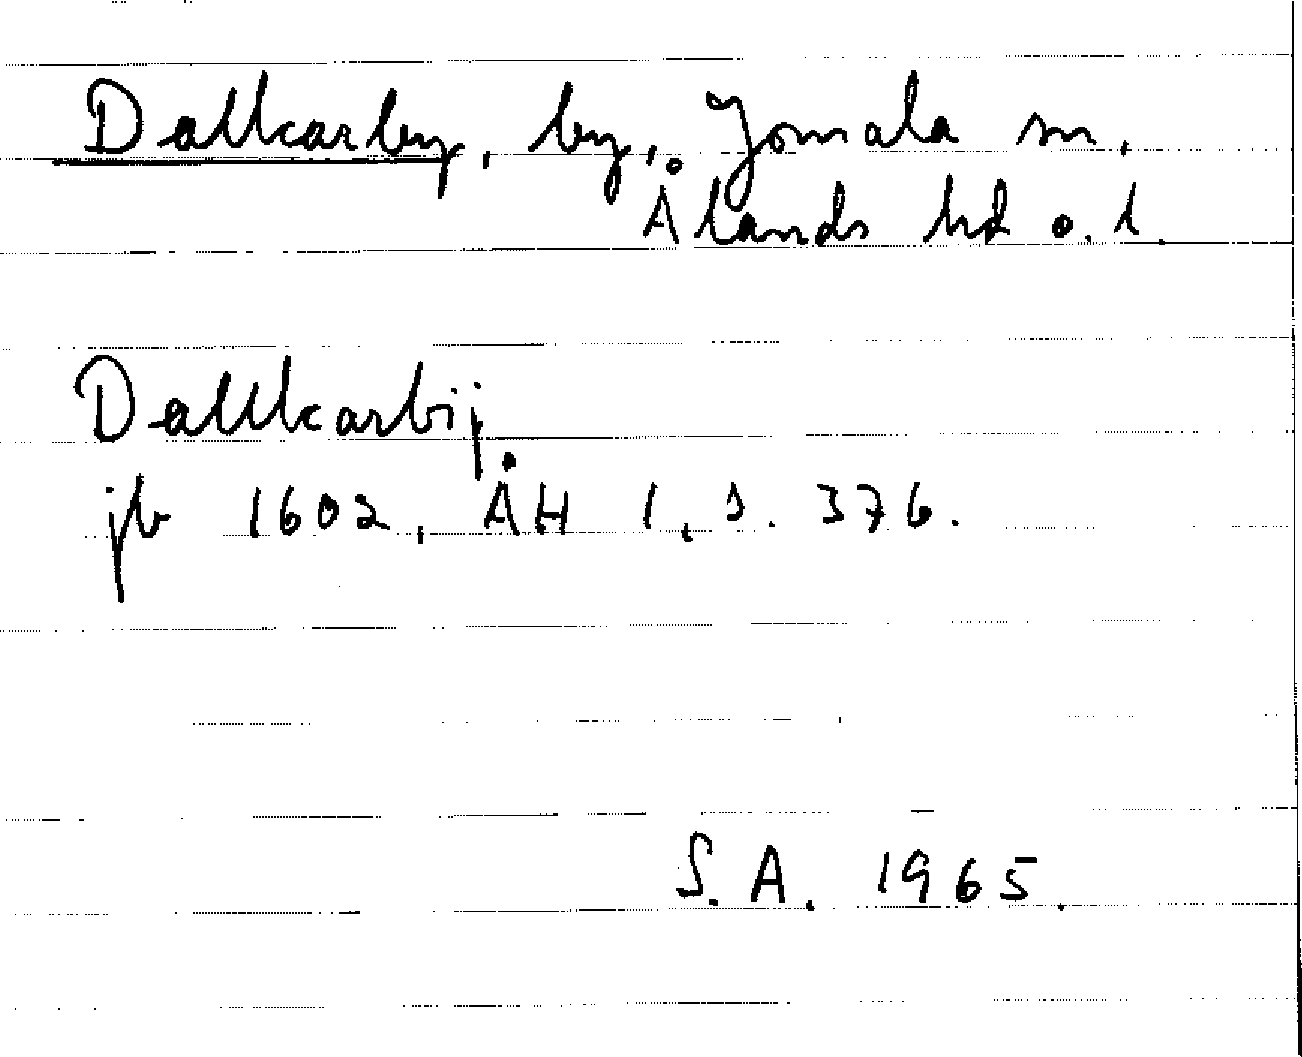 Dalkarby, by, Jomala sn,
Ålands hd o. l.
Dalkkarbij
jb 1602, ÅH 1, s. 376.
S. A. 1965.